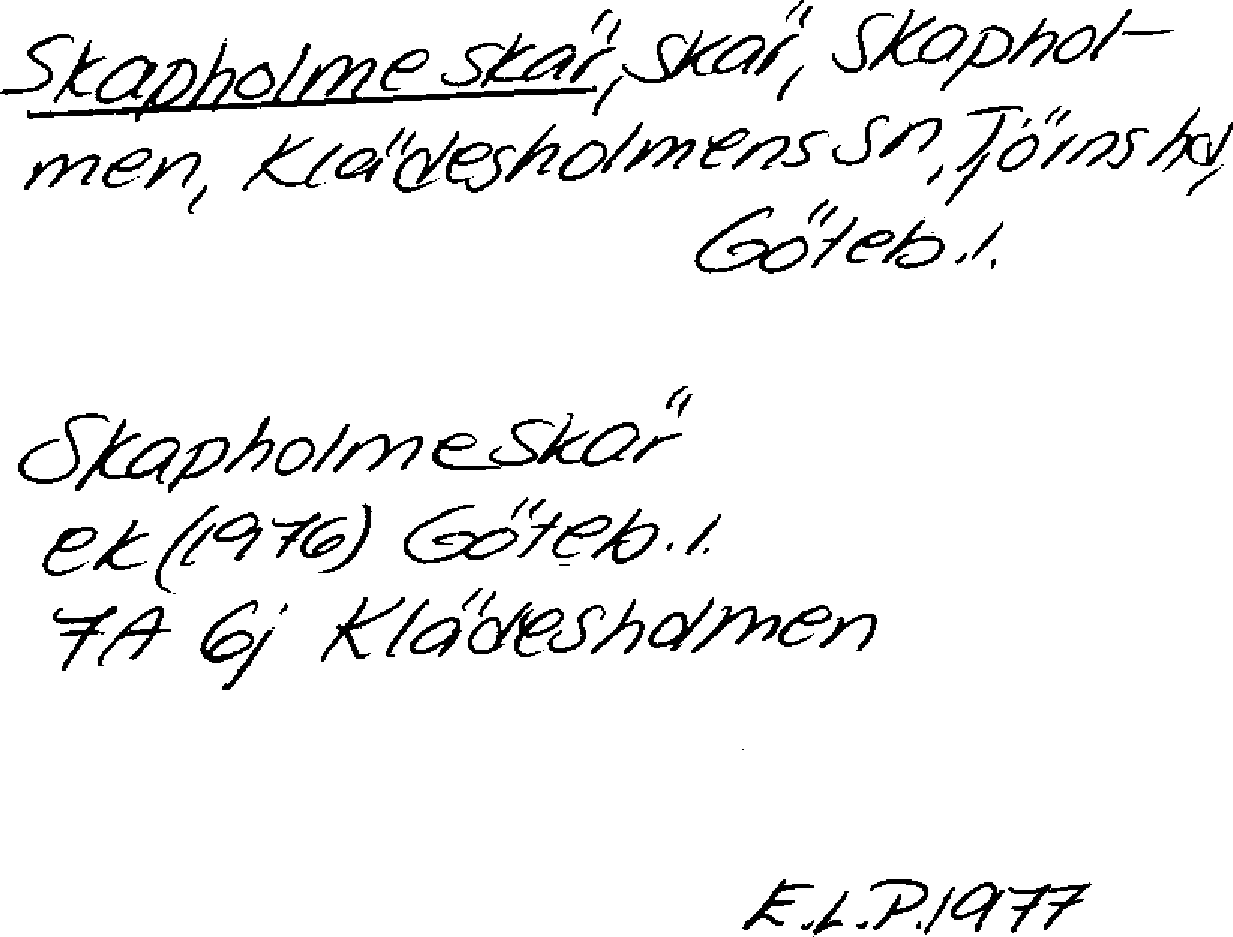 Skapholme skär, skär, Skaphol-
men, Klädesholmens sn, Tjörns hd,
Göteb.l.
Skapholmeskär
ek (1976) Göteb.l.
7A 6j Klädesholmen
E.L.P. 1977